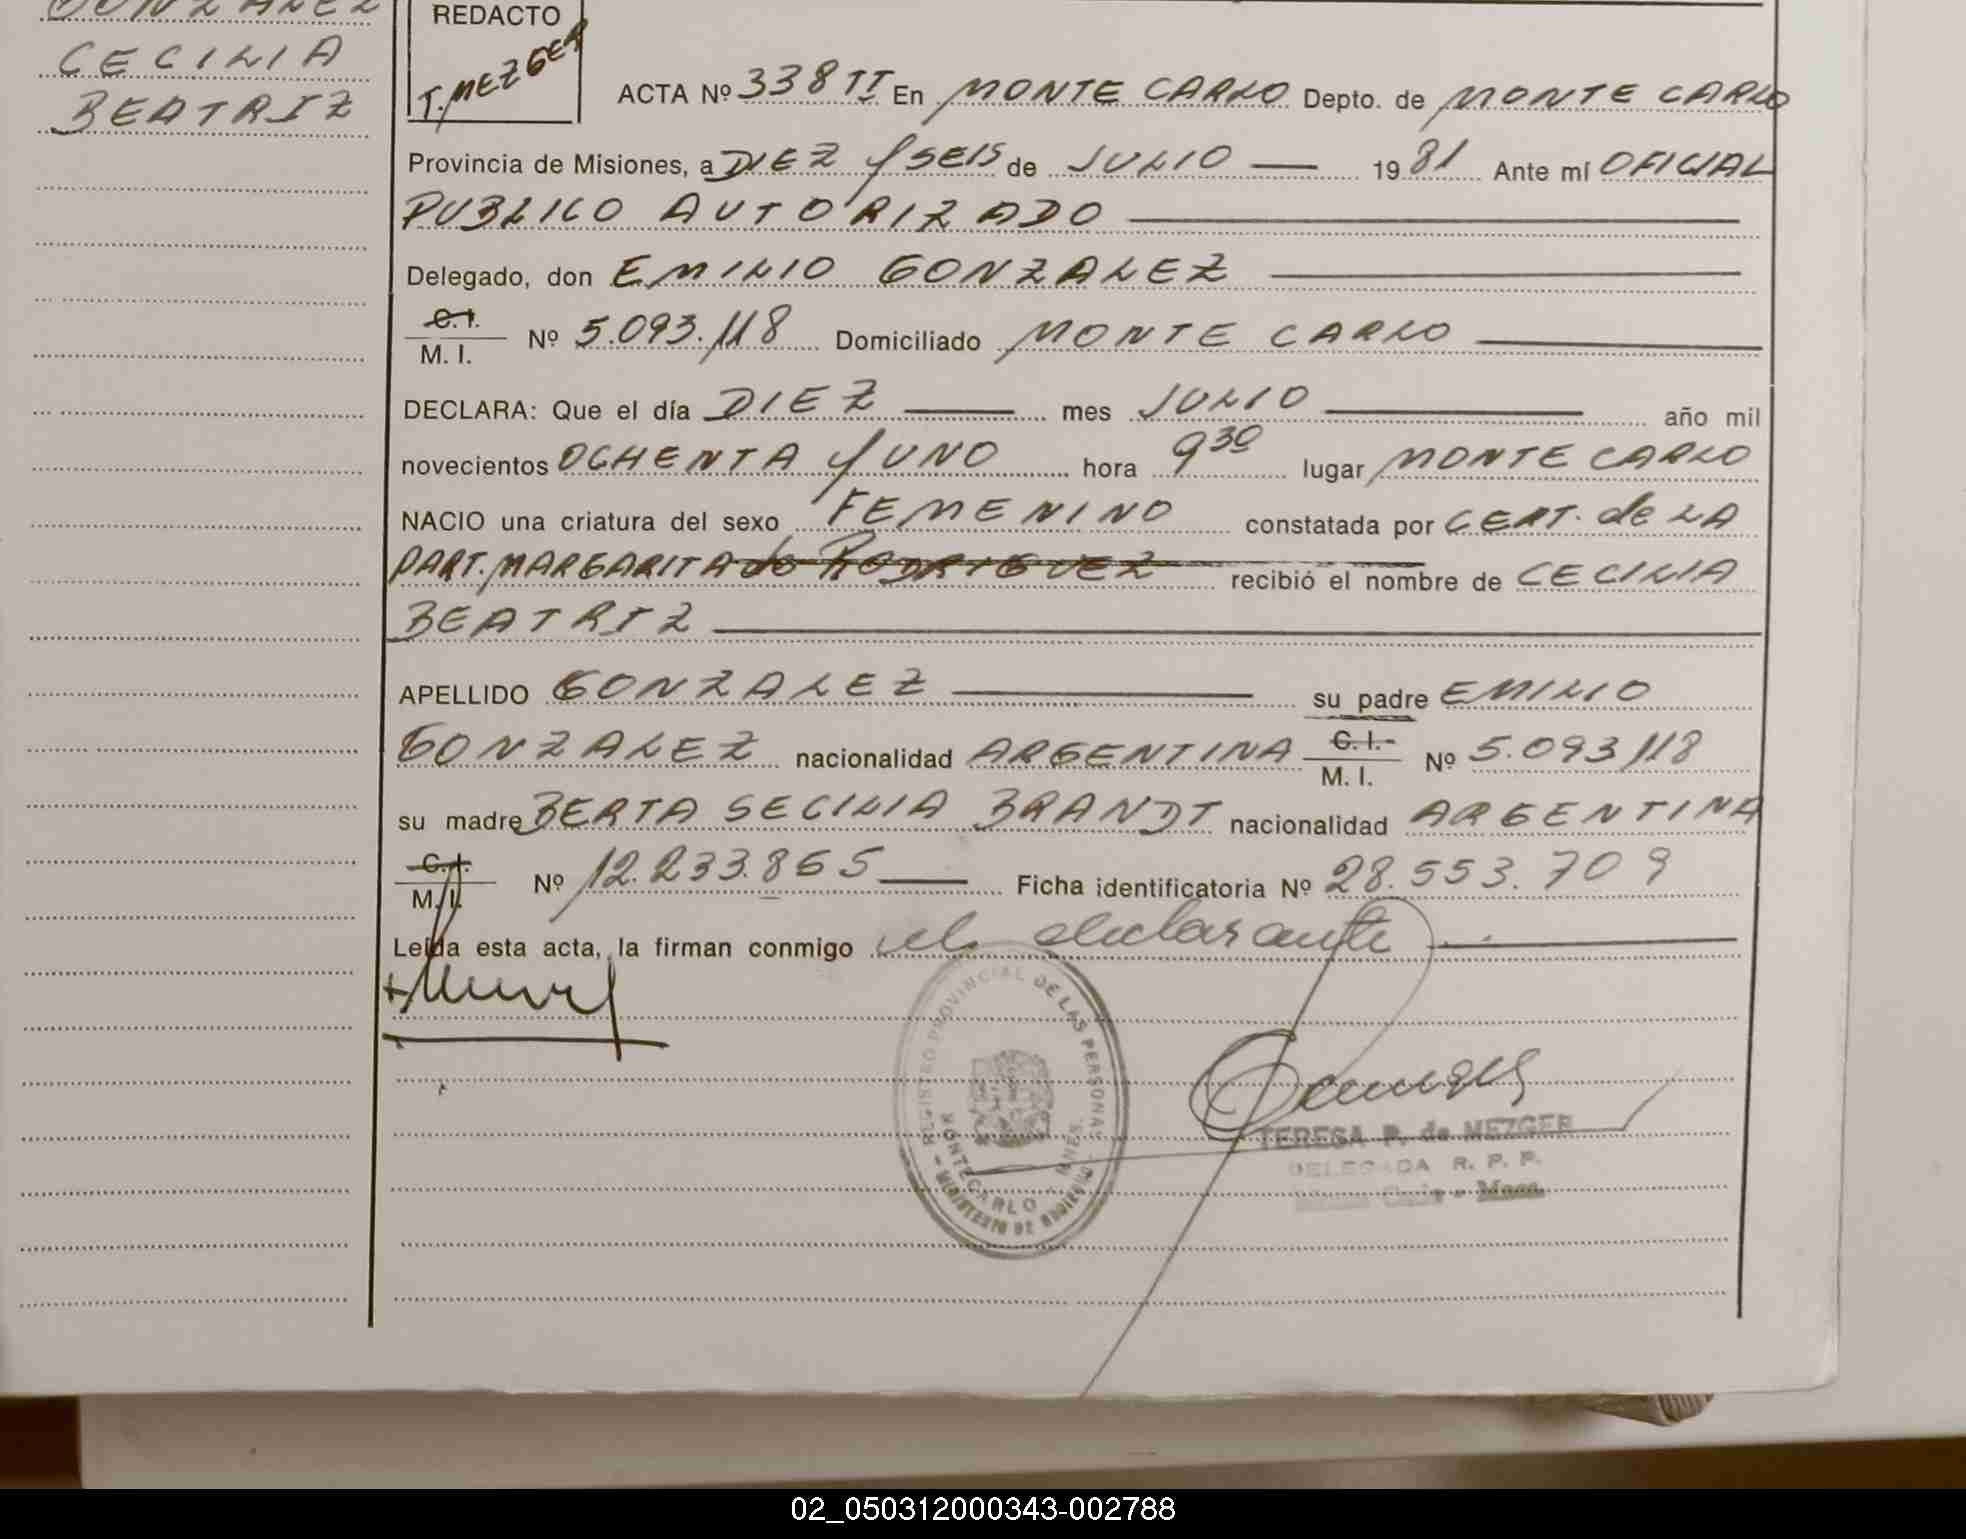 GONZALEZ
CECILIA
BEATRIZ
REDACTO
T. MEZGER
ACTA Nº 338 TI En MONTE CARLO Depto. de MONTE CARLO
Provincia de Misiones, a DIEZ y SEIS de JULIO 19 81 Ante mí OFICIAL
PUBLICO AUTORIZADO
Delegado, don EMILIO GONZALEZ
C. I.
M. I. Nº 5.093.118 Domiciliado MONTE CARLO
DECLARA: Que el día DIEZ mes JULIO año mil
novecientos OCHENTA y UNO hora 9 30 lugar MONTE CARLO
NACIO una criatura del sexo FEMENINO constatada por CERT. de LA
PART. MARGARITA de RODRIGUEZ recibió el nombre de CECILIA
BEATRIZ
APELLIDO GONZALEZ su padre EMILIO
GONZALEZ nacionalidad ARGENTINA C. I. M. I. Nº 5.093118
su madre BERTA SECILIA BRANDT nacionalidad ARGENTINA
C. I.
M. I. Nº 12.233.865 Ficha identificatoria Nº 28.553.709
Leída esta acta, la firman conmigo el declarante
REGISTRO PROVINCIAL DE LAS PERSONAS
MONTECARLO - MNES.
MINISTERIO DE GOBIERNO
TERESA P. de MEZGER
DELEGADA R. P. P.
02_050312000343-002788